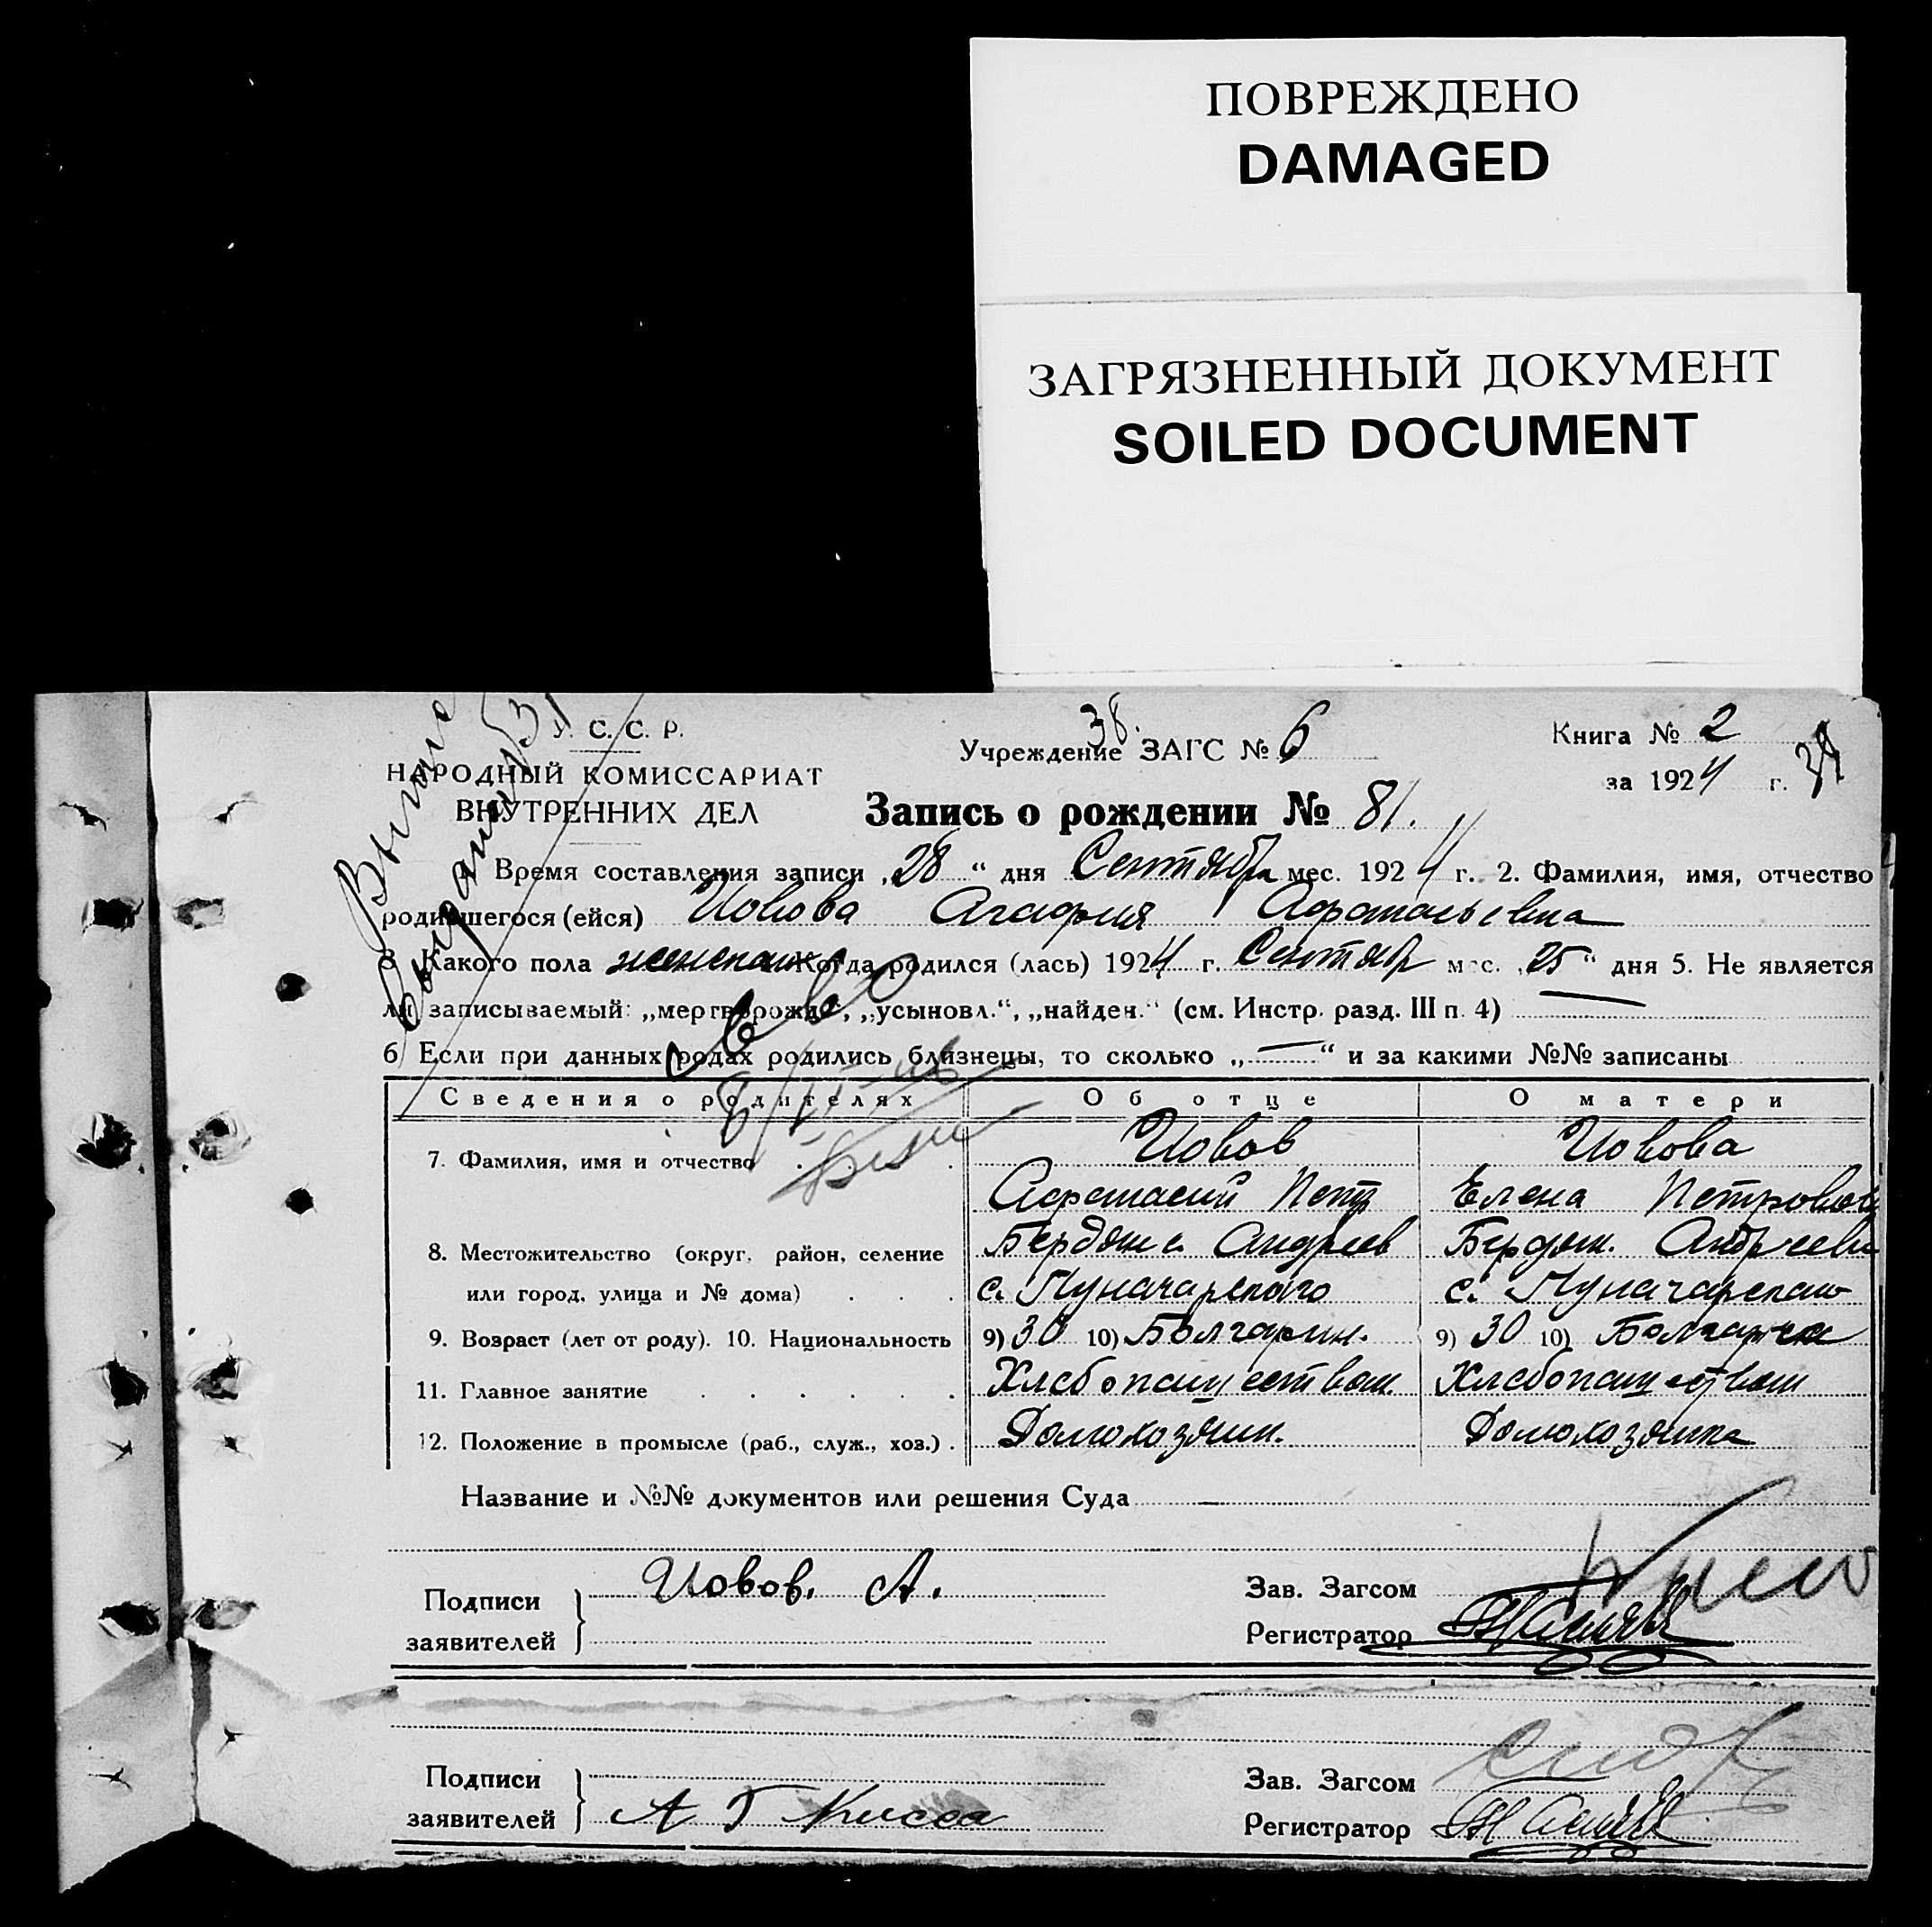 ПОВРЕЖДЕНО
DAMAGED
ЗАГРЯЗНЕННЫЙ ДОКУМЕНТ
SOILED DOCUMENT
У. С. С. Р.
НАРОДНЫЙ КОМИССАРИАТ
ВНУТРЕННИХ ДЕЛ
38.
Учреждение ЗАГС № 6
Книга № 2
за 1924 г.
Запись о рождении № 81.
1. Время составления записи „28“ дня Сентября мес. 1924 г. 2. Фамилия, имя, отчество
родившегося (ейся) Иовова Агафия Афанасьевна
3 Какого пола женского Когда родился (лась) 1924 г. Сентябр мес. „25“ дня 5. Не является
ли записываемый: „мертворожд“, „усыновл.“, „найден.“ (см. Инстр. разд. III п. 4) —
6 Если при данных родах родились близнецы, то сколько „—“ и за какими №№ записаны
Сведения о родителях Об отце О матери
7. Фамилия, имя и отчество Иовов Иовова
Афанасий Петр Елена Петровна
8. Местожительство (округ, район, селение Бердянс. Андреев Бердян. Андреевс
или город, улица и № дома) с. Луначарского с. Луначарского
9. Возраст (лет от роду). 10. Национальность 9) 30 10) Болгарин. 9) 30 10) Болгарка
11. Главное занятие Хлебопашеством. Хлебопашеством
12. Положение в промысле (раб., служ., хоз.) Домохозяин. Домохозяйка
Название и №№ документов или решения Суда —
Подписи
заявителей
Иовов. А.
Зав. Загсом
Регистратор
Подписи
заявителей
А Г Кисса
Зав. Загсом
Регистратор